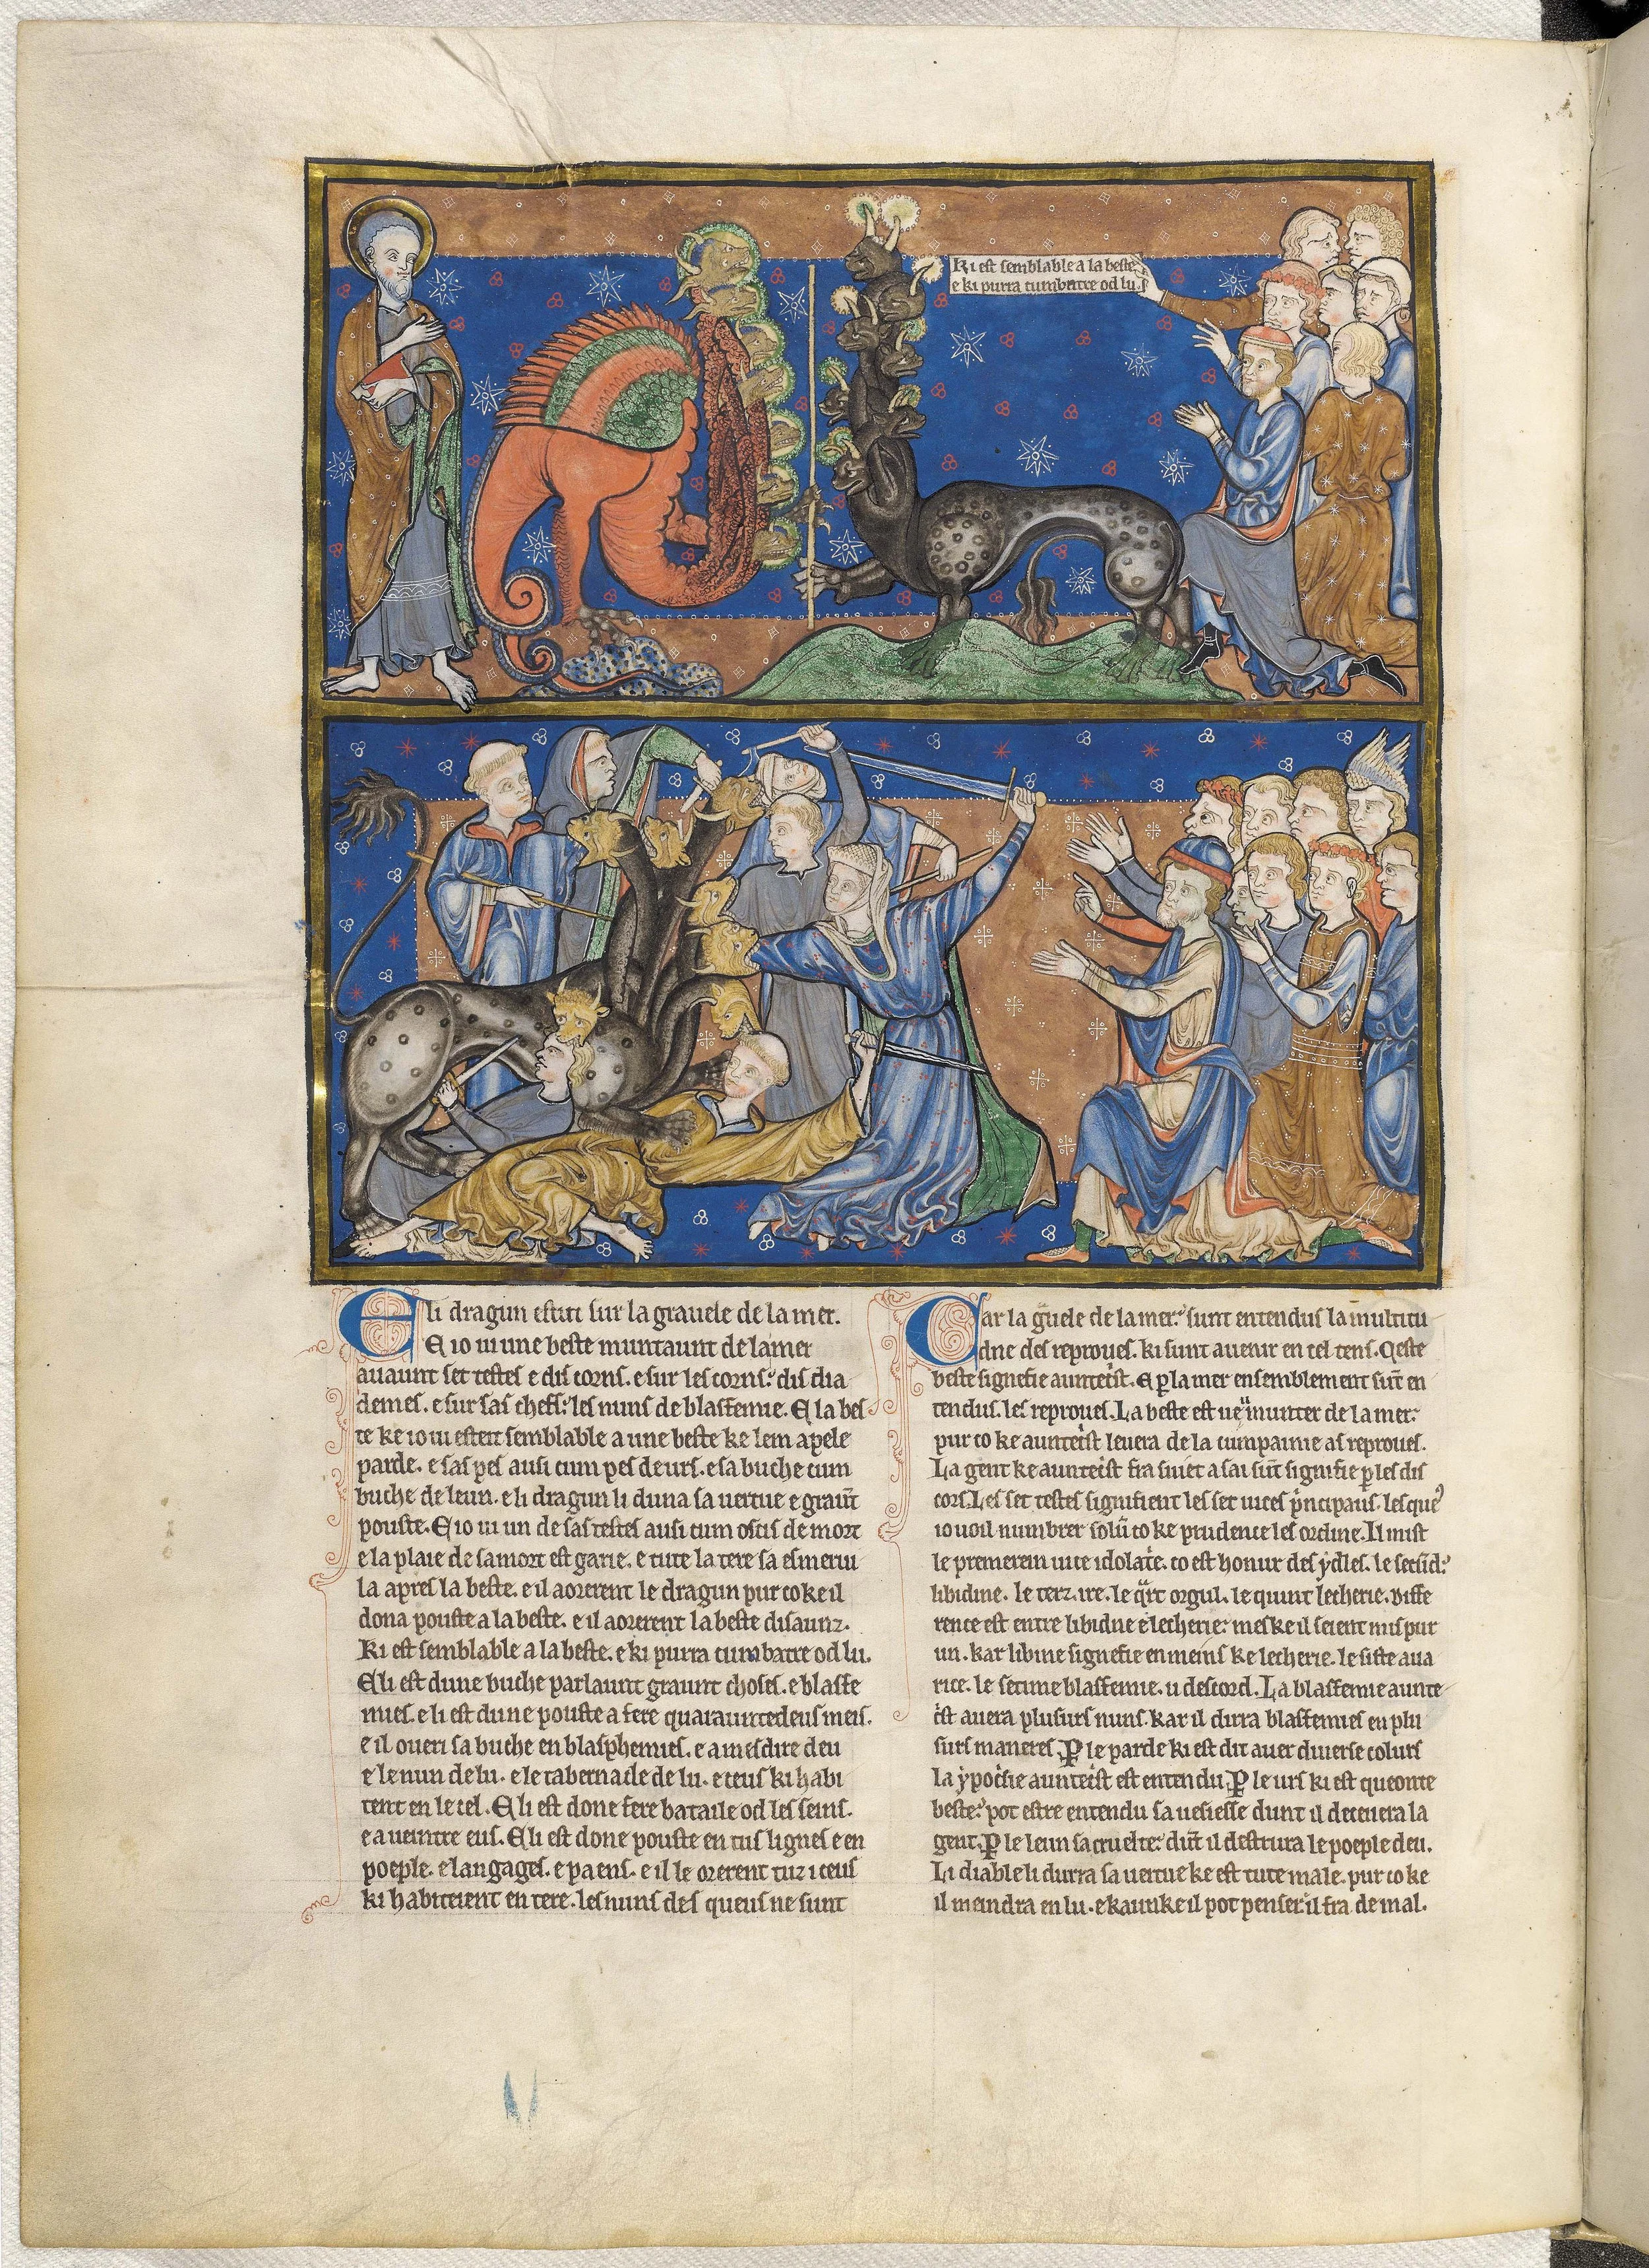 Ki est semblable a la beste
e ki purra cumbatre od lu.
E li dragun estut sur la gravele de la mer.
E io vi une beste muntaunt de la mer
avaunt set testes e dis corns. e sur les corns: dis dia
demes. e sur sas chefs: les nuns de blasfemie. E la bes
te ke io vi esteit semblable a une beste ke lem apele
parde. e sas pes ausi cum pes de urs. e sa buche cum
buche de leun. e li dragun li duna sa vertue e graunt
pouste. E io vi un de sas testes ausi cum oscis de mort
e la plaie de sa mort est garie. e tute la tere sa esmerui
la apres la beste. e il aorerent le dragun pur co ke il
dona pouste a la beste. e il aorerent la beste disaunz.
Ki est semblable a la beste. e ki purra cumbatre od lu.
E li est dune buche parlaunt graunt choses. e blasfe
mies. e li est dune pouste a fere quarauntedeus meis.
e il overi sa buche en blasphemies. e a mesdire deu
e le nun de lu. e le tabernacle de lu. e ceus ki habi
tent en le cel. E li est done fere bataile od les seins.
e a veintre eus. E li est done pouste en tus lignes e en
poeple. e langages. e paens. e il le orerent tuz iceus
ki habiteient en tere. les nuns des queus ne sunt
Car la guele de la mer: sunt entendus la multitu
dne des reproves. ki sunt avenir en cel tens. Ceste
beste signefie auntecist. E p la mer ensemblement sunt en
tendus. les reproves. La beste est veu munter de la mer:
pur co ke auntecist levera de la cumpainie as reproves.
La gent ke auntecist fra sivet a sai sunt signifie p les dis
cors. Les set testes signifient les set vices principaus. les que
io voil numbrer solum co ke prudence les ordine. Il mist
le premerein vice idolatie. co est honur des ydles. le secund:
libidine. le terz. ire. le qart orgul. le quint lecherie. Diffe
rence est entre libidne e lecherie: mes ke il seient mis pur
un. kar libine signefie en meins ke lecherie. le siste ava
rice. le setime blasfemie. u descord. La blasfemie aunte
cist avera plusurs nuns. kar il dirra blasfemies en plu
surs maneres. P le parde ki est dit aver diverse colurs
la ypocisie auntecist est entendu. P le urs ki est queonte
beste: pot estre entendu sa vesiesse dunt il decevera la
gent. P le leun sa cruelte: dunt il destrura le poeple deu.
Li diable li durra sa vertue ke est tute male. pur co ke
il meindra en lu. e kaunke il pot penser: il fra de mal.